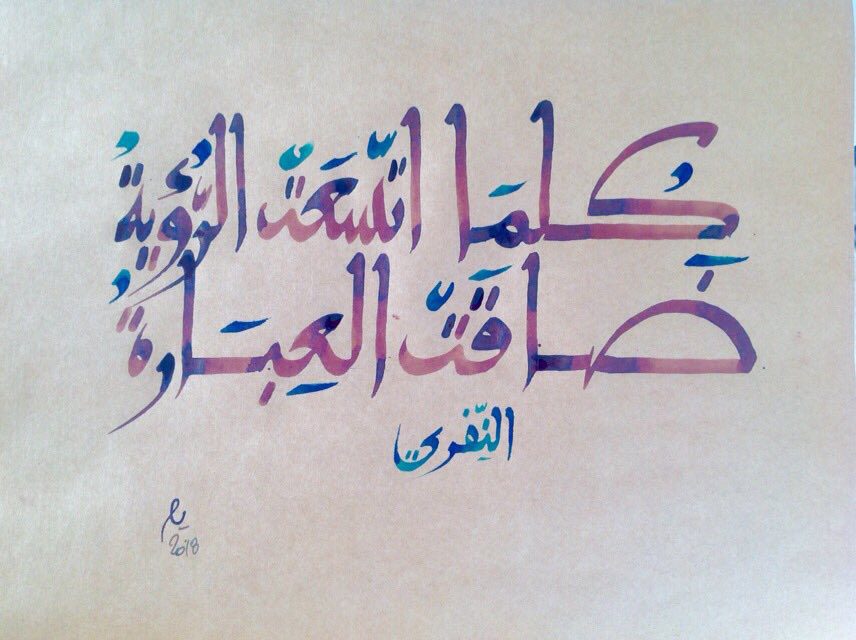 كُلَّمَا اتَّسَعَتْ الرُّؤيةُ
ضَاقَتْ العِبَارةُ
النِّفّري
2018